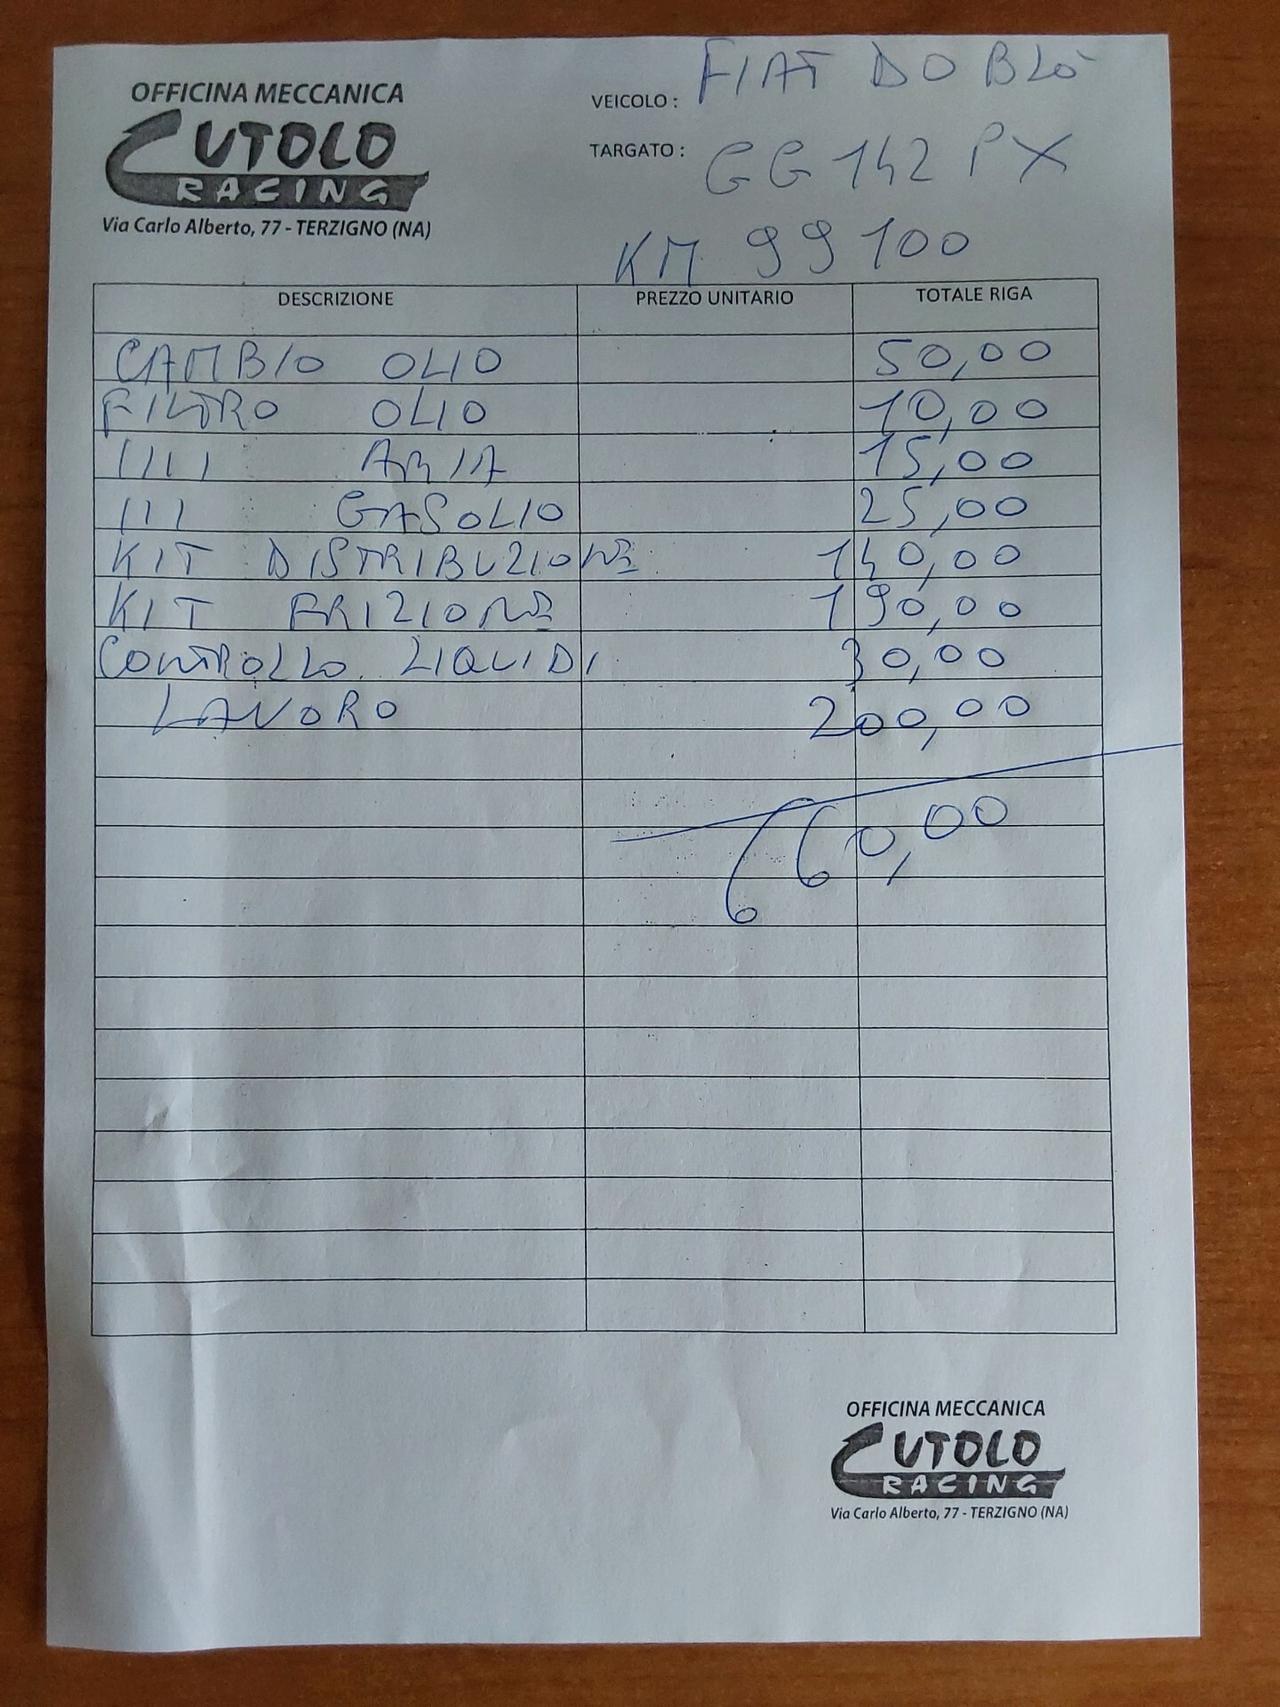 OFFICINA MECCANICA
CUTOLO
RACING
Via Carlo Alberto, 77 - TERZIGNO (NA)
VEICOLO : FIAT DOBLò
TARGATO : GG 142 PX
KM 99100
DESCRIZIONE PREZZO UNITARIO TOTALE RIGA
CAMBIO OLIO 50,00
FILTRO OLIO 10,00
//// ARIA 15,00
/// GASOLIO 25,00
KIT DISTRIBUZIONE 140,00
KIT FRIZIONE 190,00
CONTROLLO LIQUIDI 30,00
LAVORO 200,00
660,00
OFFICINA MECCANICA
CUTOLO
RACING
Via Carlo Alberto, 77 - TERZIGNO (NA)